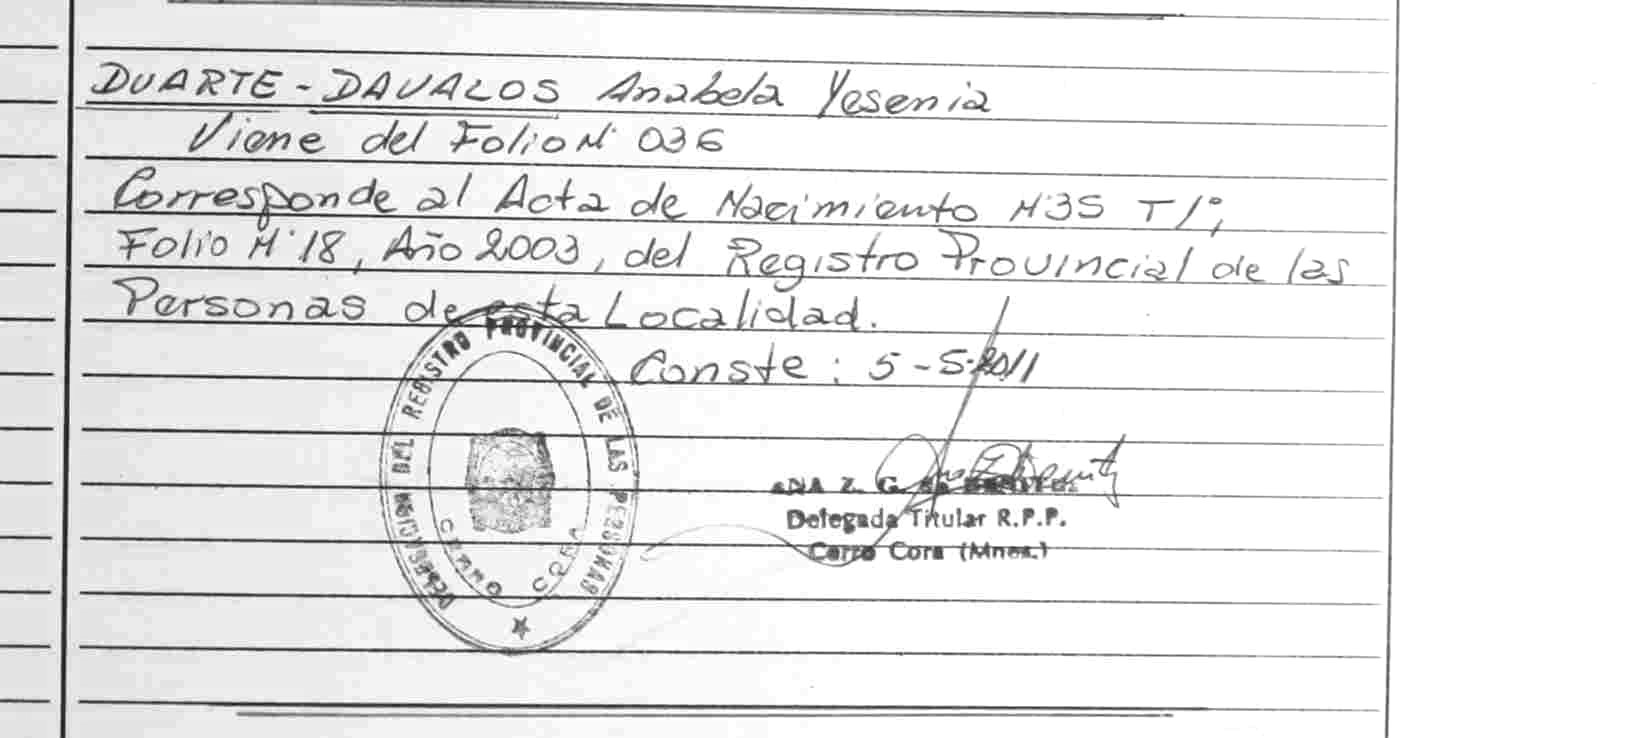 DUARTE - DAVALOS Anabela Yesenia
Viene del Folio Nº 036
Corresponde al Acta de Nacimiento Nº 35 T 1º,
Folio Nº 18, Año 2003, del Registro Provincial de las
Personas de esta Localidad.
Conste: 5-5-2011
DELEGACION DEL REGISTRO PROVINCIAL DE LAS PERSONAS
CERRO CORA
ANA Z. G.
Delegada Titular R.P.P.
Cerro Cora (Mnes.)